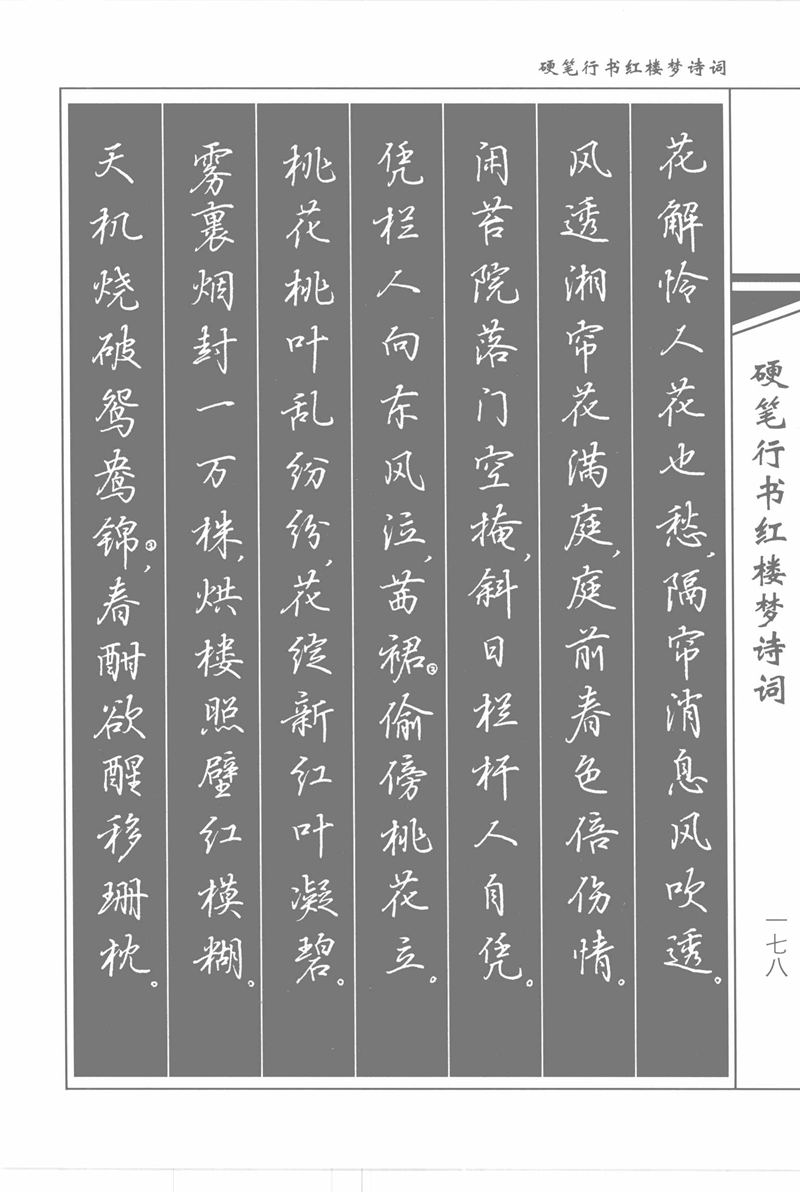 硬笔行书红楼梦诗词
花解怜人花也愁，隔帘消息风吹透。
风透湘帘花满庭，庭前春色倍伤情。
闲苔院落门空掩，斜日栏杆人自凭。
凭栏人向东风泣，茜裙②偷傍桃花立。
桃花桃叶乱纷纷，花绽新红叶凝碧。
雾裹烟封一万株，烘楼照壁红模糊。
天机烧破鸳鸯锦③，春酣欲醒移珊枕。
硬笔行书红楼梦诗词
一七八